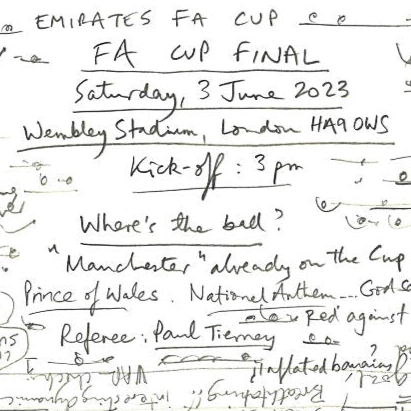 EMIRATES FA CUP
FA CUP FINAL
Saturday, 3 June 2023
Wembley Stadium, London HA9 0WS
Kick-off : 3 pm
Where's the ball?
"Manchester" already on the Cup
Prince of Wales. National Anthem... God
Red against
Referee: Paul Tierney
¡Inflated bananas
VAR check
Breathtaking!! Interesting dynamics